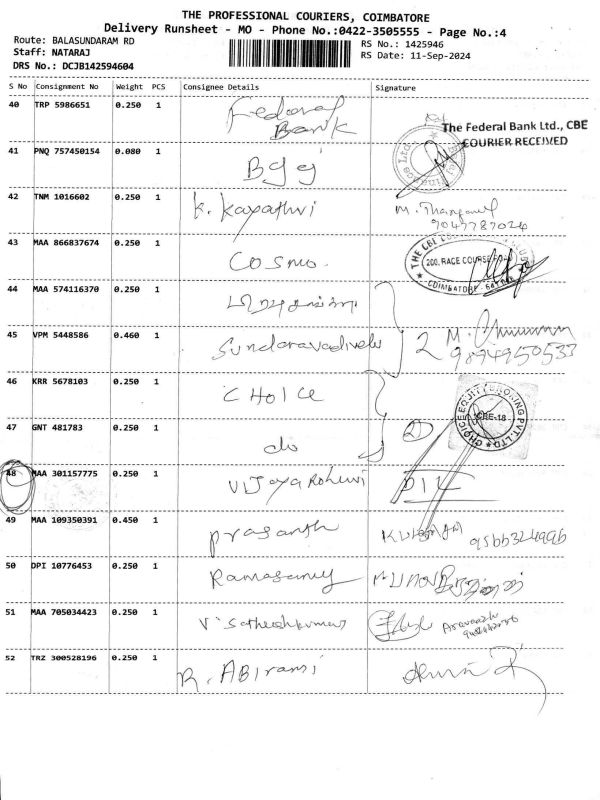 THE PROFESSIONAL COURIERS, COIMBATORE
Delivery Runsheet - MO - Phone No.:0422-3505555 - Page No.:4
Route: BALASUNDARAM RD
RS No.: 1425946
Staff: NATARAJ
RS Date: 11-Sep-2024
DRS No.: DCJB142594604
S No Consignment No Weight PCS Consignee Details Signature
40 TRP 5986651 0.250 1 Federal Bank
The Federal Bank Ltd., CBE
COURIER RECEIVED
41 PNQ 757450154 0.080 1
42 TNM 1016602 0.250 1 K. Kayathri M.
9047787024
43 MAA 866837674 0.250 1 Cosmo.
200, RACE COURSE ROAD
COIMBATORE
44 MAA 574116370 0.250 1
45 VPM 5448586 0.460 1 Sundaravadivelu 2 M.
9894950533
46 KRR 5678103 0.250 1 CHOICE
CHOICE EQUITY BROKING PVT. LTD
CBE-18
47 GNT 481783 0.250 1 do 2
48 MAA 301157775 0.250 1 Vijaya Rohini
49 MAA 109350391 0.450 1 Prasanth 9566324996
50 DPI 10776453 0.250 1 Ramasamy
51 MAA 705034423 0.250 1 V. Satheshkumar
52 TRZ 300528196 0.250 1 R. ABIrami